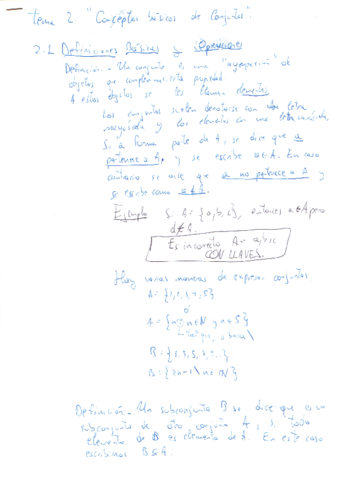 tema 2 "Conceptos básicos de Conjuntos".
2.1 Definiciones Básicas y Operaciones
Definición - Un conjunto es una "agrupación" de
objetos que cumplen cierta propiedad
A estos objetos se les llama elementos
Los conjuntos suelen denotarse con una letra
mayúscula y los elementos con una letra minúscula,
Si a forma parte de A, se dice que a
pertenece a A, y se escribe a∈A. En caso
contrario se dice que a no pertenece a A y
se escribe como a∉A.
Ejemplo Si A={a,b,c}, entonces a∈A pero
d∉A.
Es incorrecto A=a,b,c
CON LLAVES.
Hay varias maneras de expresar conjuntos
A={1,2,3,4,5}
ó
A={n | n∈N y n≤5}
tal que, o barra \
B={1,3,5,7,...}
B={2n-1 \ n∈N}
Definición - Un subconjunto B se dice que es un
subconjunto de otro conjunto A, si todo
elemento de B es elemento de A. En este caso
escribimos B⊆A.